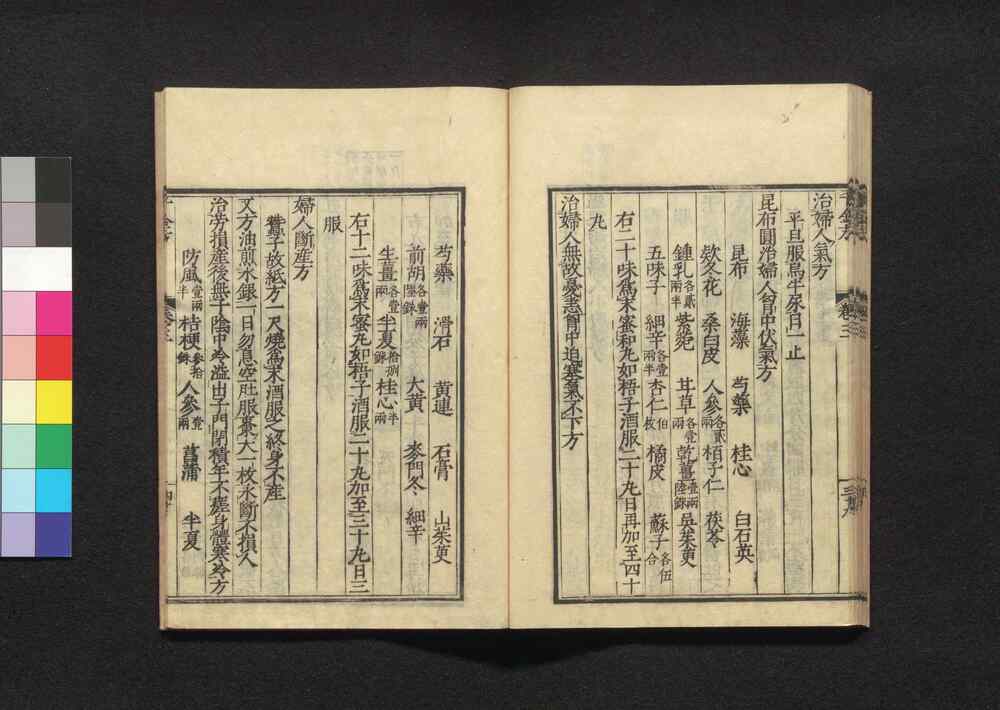 治婦人氣方
平旦服烏牛尿日一止
昆布圓治婦人胷中伏氣方
昆布　海藻　芍藥　桂心　白石英
欵冬花　桑白皮　人參各貳兩　栢子仁　茯苓
鍾乳各貳兩半　紫菀　甘草各壹兩　乾薑壹兩陸銖　吳茱萸
五味子　細辛各壹兩半　杏仁伯枚　橘皮　蘇子各伍合
右二十味爲末蜜和丸如梧子酒服二十丸日再加至四十
丸
治婦人無故憂恚胷中迫塞氣不下方
芍藥　滑石　黃連　石膏　山茱萸
前胡各壹兩陸銖　大黃　麥門冬　細辛
生薑各壹兩　半夏拾捌銖　桂心半兩
右十二味爲末蜜丸如梧子酒服二十丸加至三十丸日三
服
婦人斷產方
蠶子故紙方一尺燒爲末酒服之終身不產
又方油煎水銀一日勿息空肚服棗大一枚永斷不損人
治勞損產後無子陰中冷溢出子門閉積年不瘥身體寒冷方
防風壹兩半　桔梗參拾銖　人參壹兩　菖蒲　半夏